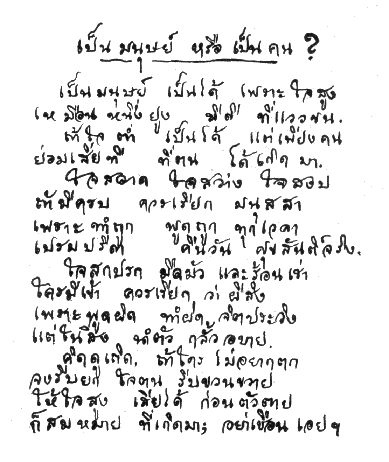 เป็นมนุษย์ หรือ เป็นคน ?
เป็นมนุษย์ เป็นได้ เพราะใจสูง
เหมือนหนึ่งยูง มีดี ที่แววขน.
ถ้าใจต่ำ เป็นได้ แต่เพียงคน
ย่อมเสียที ที่ตน ได้เกิดมา.
ใจสอาด ใจสว่าง ใจสงบ
ถ้ามีครบ ควรเรียก มนุสสา
เพราะทำถูก พูดถูก ทุกเวลา
เปรมปรีดา คืนวัน ศุขสันติ์จริง.
ใจสกปรก มืดมัว และร้อนเร่า
ใครมีเข้า ควรเรียก ว่าผีสิง
เพราะพูดผิด ทำผิด จิตประวิง
แต่ในสิ่ง นำตัว กลั้วอบาย.
คิดดูเถิด, ถ้าใคร ไม่อยากตก
จงรีบยก ใจตน รีบขวนขวาย
ให้ใจสูง เสียได้ ก่อนตัวตาย
ก็สมหมาย ที่เกิดมา; อย่าเชือน เอยฯ